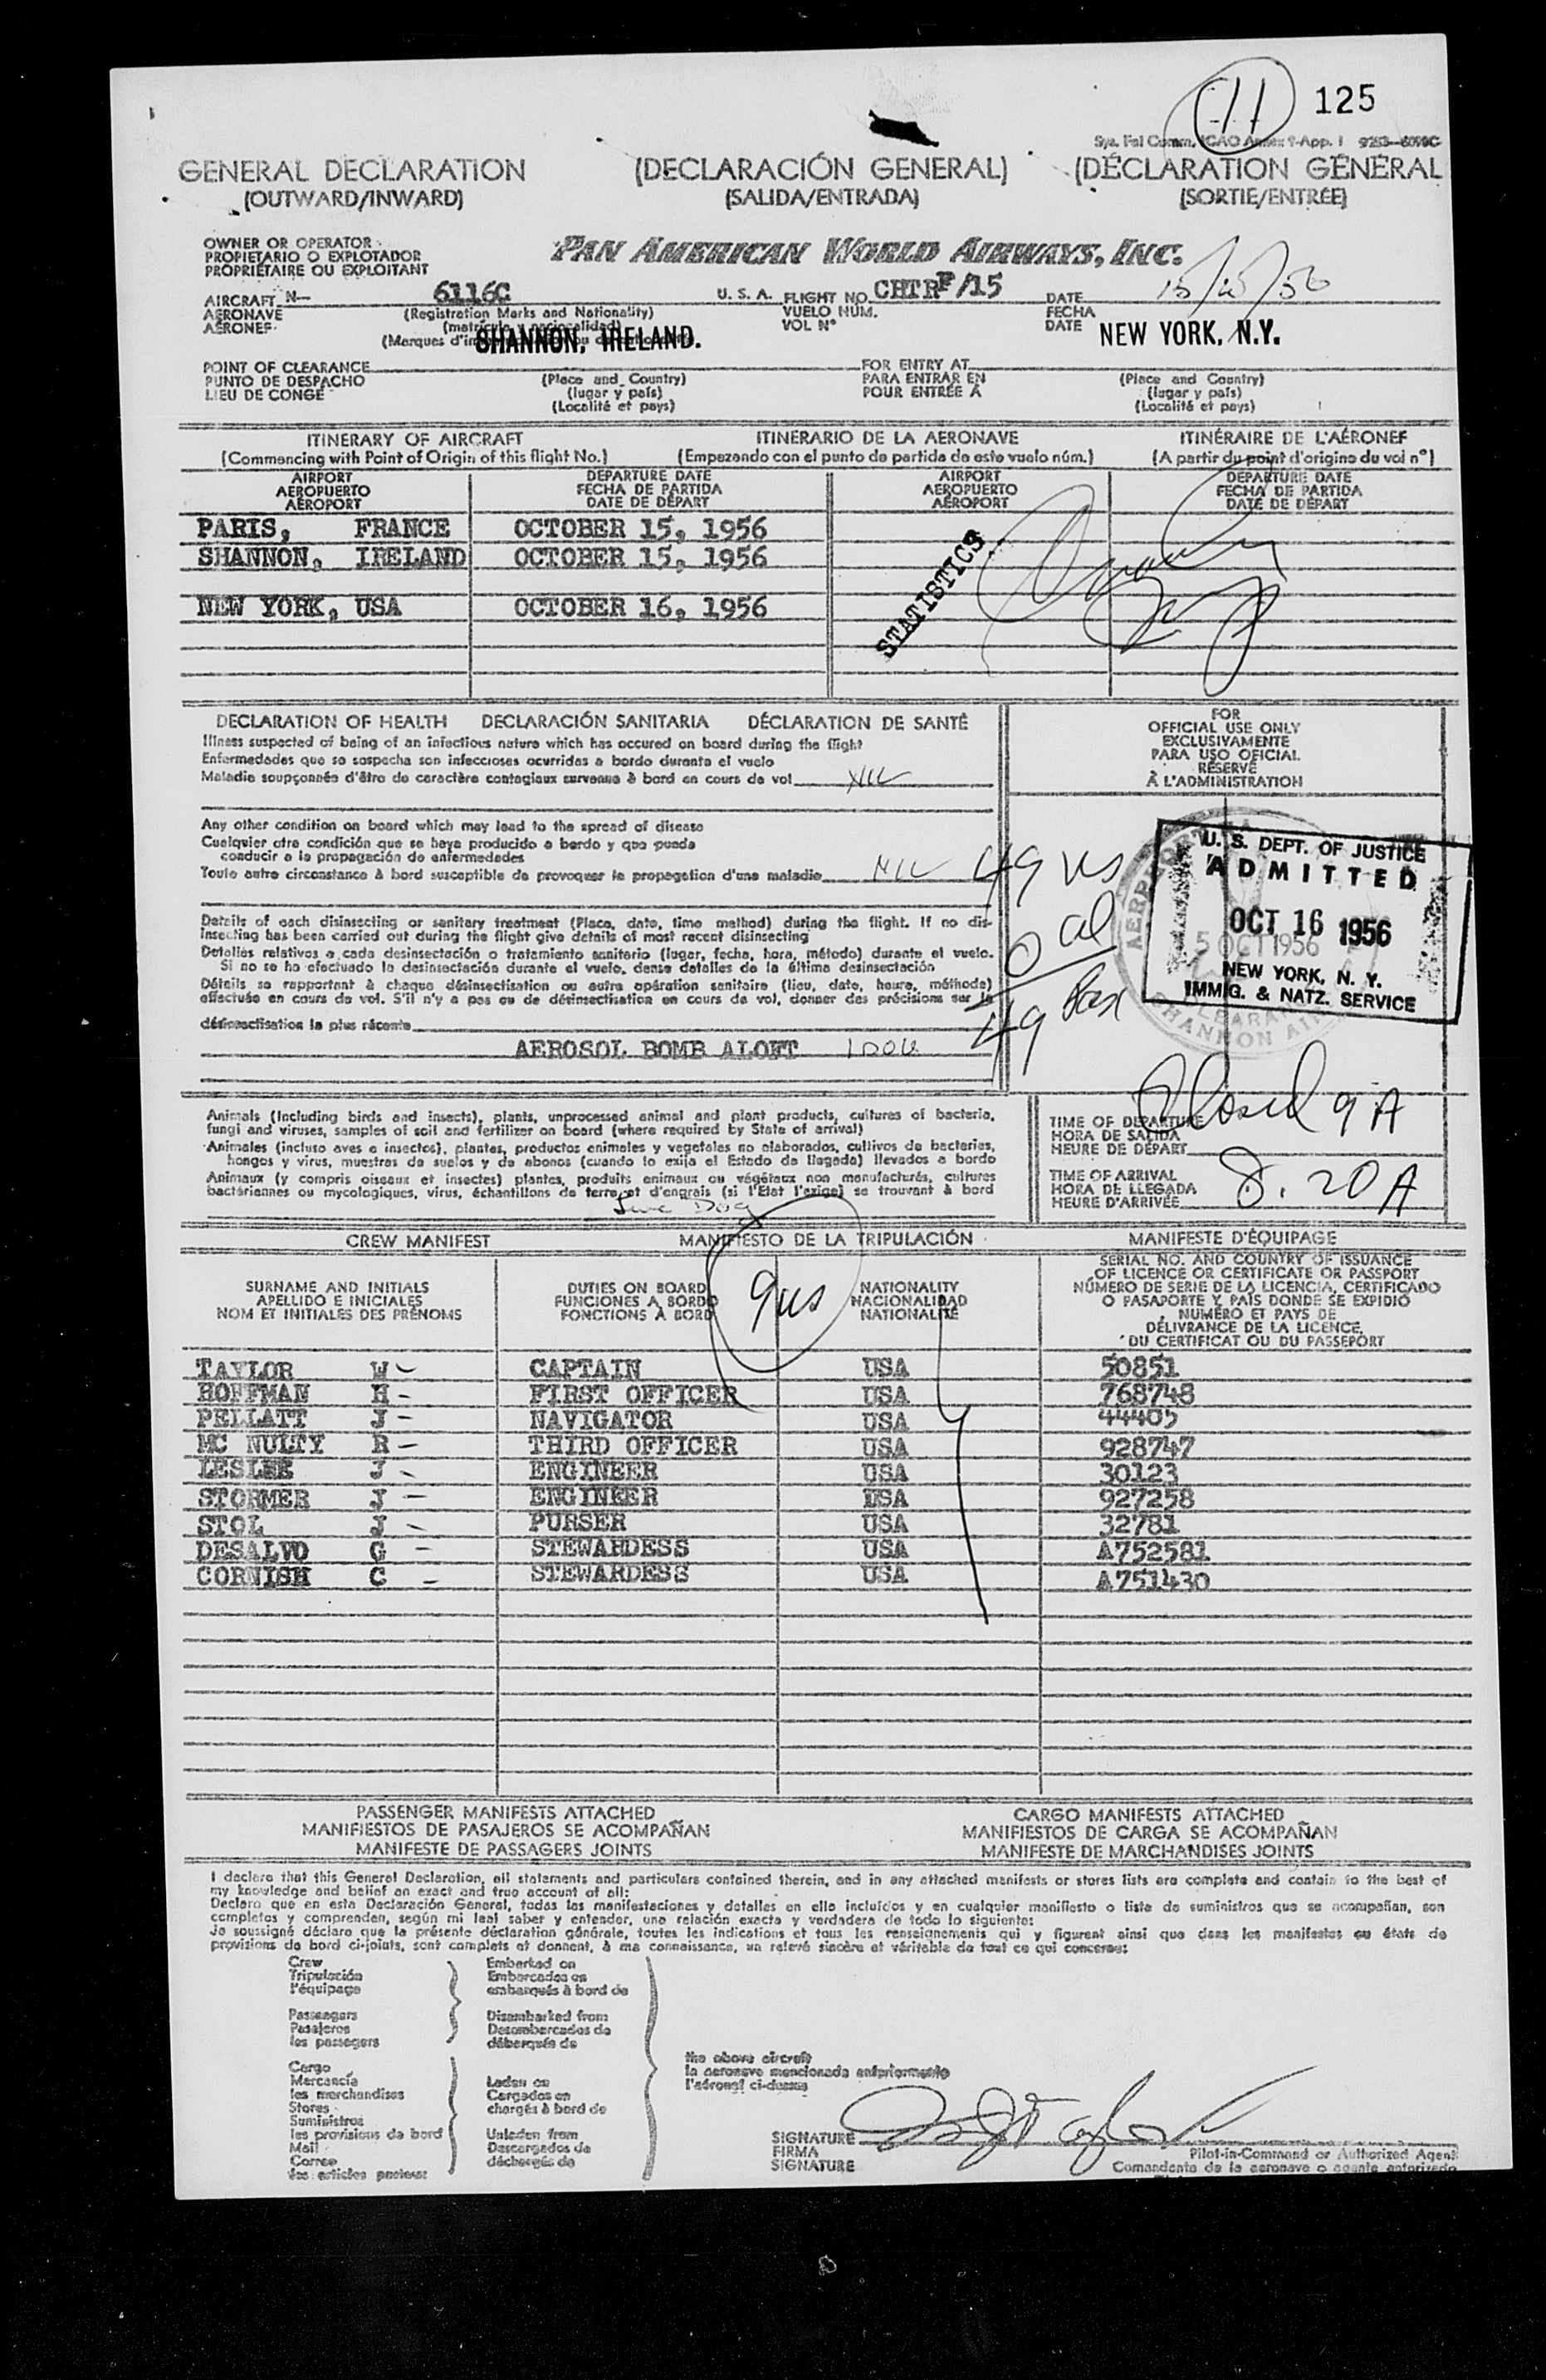 11 125
Sys. Fal Comm. ICAO Annex 9-App. 1
GENERAL DECLARATION (DECLARACIÓN GENERAL) (DÉCLARATION GÉNÉRAL
(OUTWARD/INWARD) (SALIDA/ENTRADA) (SORTIE/ENTRÉE)
OWNER OR OPERATOR
PROPIETARIO O EXPLOTADOR
PROPRIÉTAIRE OU EXPLOITANT
PAN AMERICAN WORLD AIRWAYS, INC.
AIRCRAFT N— 6116C U. S. A. FLIGHT NO. CHTR F/15 DATE 15/10/56
AERONAVE (Registration Marks and Nationality) VUELO NÚM. FECHA
AÉRONEF (matrícula y nacionalidad) VOL N° DATE
(Marques d'im
SHANNON, IRELAND. NEW YORK, N.Y.
POINT OF CLEARANCE FOR ENTRY AT
PUNTO DE DESPACHO (Place and Country) PARA ENTRAR EN (Place and Country)
LIEU DE CONGÉ (lugar y país) POUR ENTRÉE À (lugar y país)
(Localité et pays) (Localité et pays)
ITINERARY OF AIRCRAFT ITINERARIO DE LA AERONAVE ITINÉRAIRE DE L'AÉRONEF
(Commencing with Point of Origin of this flight No.) (Empezando con el punto de partida de este vuelo núm.) (A partir du point d'origine du vol n°)
AIRPORT DEPARTURE DATE AIRPORT DEPARTURE DATE
AEROPUERTO FECHA DE PARTIDA AEROPUERTO FECHA DE PARTIDA
AÉROPORT DATE DE DÉPART AÉROPORT DATE DE DÉPART
PARIS, FRANCE OCTOBER 15, 1956
SHANNON, IRELAND OCTOBER 15, 1956
NEW YORK, USA OCTOBER 16, 1956
STATISTICS
DECLARATION OF HEALTH DECLARACIÓN SANITARIA DÉCLARATION DE SANTÉ
Illness suspected of being of an infectious nature which has occured on board during the flight
Enfermedades que se sospecha son infecciosas ocurridas a bordo durante el vuelo
Maladie soupçonnée d'être de caractère contagieux survenue à bord en cours de vol NIL
Any other condition on board which may lead to the spread of disease
Cualquier otra condición que se haya producido a bordo y que pueda
conducir a la propagación de enfermedades
Toute autre circonstance à bord susceptible de provoquer la propagation d'une maladie NIL
Details of each disinsecting or sanitary treatment (Place, date, time method) during the flight. If no dis-
insecting has been carried out during the flight give details of most recent disinsecting
Detalles relativos a cada desinsectación o tratamiento sanitario (lugar, fecha, hora, método) durante el vuelo.
Si no se ha efectuado la desinsectación durante el vuelo, dense detalles de la última desinsectación
Détails se rapportant à chaque désinsectisation ou autre opération sanitaire (lieu, date, heure, méthode)
effectuée en cours de vol. S'il n'y a pas eu de désinsectisation en cours de vol, donner des précisions sur la
désinsectisation la plus récente
AEROSOL BOMB ALOFT
FOR
OFFICIAL USE ONLY
EXCLUSIVAMENTE
PARA USO OFICIAL
RÉSERVÉ
À L'ADMINISTRATION
49 us
0 al
49 Pax
U. S. DEPT. OF JUSTICE
ADMITTED
OCT 16 1956
5 OCT 1956
NEW YORK, N. Y.
IMMIG. & NATZ. SERVICE
Animals (Including birds and insects), plants, unprocessed animal and plant products, cultures of bacteria,
fungi and viruses, samples of soil and fertilizer on board (where required by State of arrival)
Animales (incluso aves e insectos), plantas, productos animales y vegetales no elaborados, cultivos de bacterias,
hongos y virus, muestras de suelos y de abonos (cuando lo exija el Estado de llegada) llevados a bordo
Animaux (y compris oiseaux et insectes) plantes, produits animaux ou végétaux non manufacturés, cultures
bactériennes ou mycologiques, virus, échantillons de terre et d'engrais (si l'Etat l'exige) se trouvant à bord
Dog
Closed 9 A
TIME OF DEPARTURE
HORA DE SALIDA
HEURE DE DÉPART
TIME OF ARRIVAL
HORA DE LLEGADA
HEURE D'ARRIVÉE 8.20 A
CREW MANIFEST MANIFIESTO DE LA TRIPULACIÓN MANIFESTE D'ÉQUIPAGE
SURNAME AND INITIALS
APELLIDO E INICIALES
NOM ET INITIALES DES PRÉNOMS
DUTIES ON BOARD
FUNCIONES A BORDO
FONCTIONS À BORD
9 us
NATIONALITY
NACIONALIDAD
NATIONALITÉ
SERIAL NO. AND COUNTRY OF ISSUANCE
OF LICENCE OR CERTIFICATE OR PASSPORT
NÚMERO DE SERIE DE LA LICENCIA, CERTIFICADO
O PASAPORTE Y PAÍS DONDE SE EXPIDIÓ
NUMÉRO ET PAYS DE
DÉLIVRANCE DE LA LICENCE,
DU CERTIFICAT OU DU PASSEPORT
TAYLOR W CAPTAIN USA 50851
HOFFMAN H FIRST OFFICER USA 768748
PELLATT J NAVIGATOR USA 44405
MC NULTY R THIRD OFFICER USA 928747
LESLEE J ENGINEER USA 30123
STORMER J ENGINEER USA 927258
STOL J PURSER USA 32781
DESALVO G STEWARDESS USA A752581
CORNISH C STEWARDESS USA A751430
PASSENGER MANIFESTS ATTACHED CARGO MANIFESTS ATTACHED
MANIFIESTOS DE PASAJEROS SE ACOMPAÑAN MANIFIESTOS DE CARGA SE ACOMPAÑAN
MANIFESTE DE PASSAGERS JOINTS MANIFESTE DE MARCHANDISES JOINTS
I declare that this General Declaration, all statements and particulars contained therein, and in any attached manifests or stores lists are complete and contain to the best of
my knowledge and belief an exact and true account of all:
Declaro que en esta Declaración General, todas las manifestaciones y detalles en ella incluídos y en cualquier manifiesto o lista de suministros que se acompañan, son
completos y comprenden, según mi leal saber y entender, una relación exacta y verdadera de todo lo siguiente:
Je soussigné déclare que la présente déclaration générale, toutes les indications et tous les renseignements qui y figurent ainsi que dans les manifestes ou états de
provisions de bord ci-joints, sont complets et donnent, à ma connaissance, un relevé sincère et véritable de tout ce qui concerne:
Crew
Tripulación
l'équipage
Passengers
Pasajeros
les passagers
Embarked on
Embarcados en
embarqués à bord de
Disembarked from
Desembarcados de
débarqués de
Cargo
Mercancía
les marchandises
Stores
Suministros
les provisions de bord
Mail
Correo
les articles postaux
Laden on
Cargados en
chargés à bord de
Unladen from
Descargados de
déchargés de
the above aircraft
la aeronave mencionada anteriormente
l'aéronef ci-dessus
SIGNATURE
FIRMA
SIGNATURE
Pilot-in-Command or Authorized Agent
Comandante de la aeronave o agente autorizado